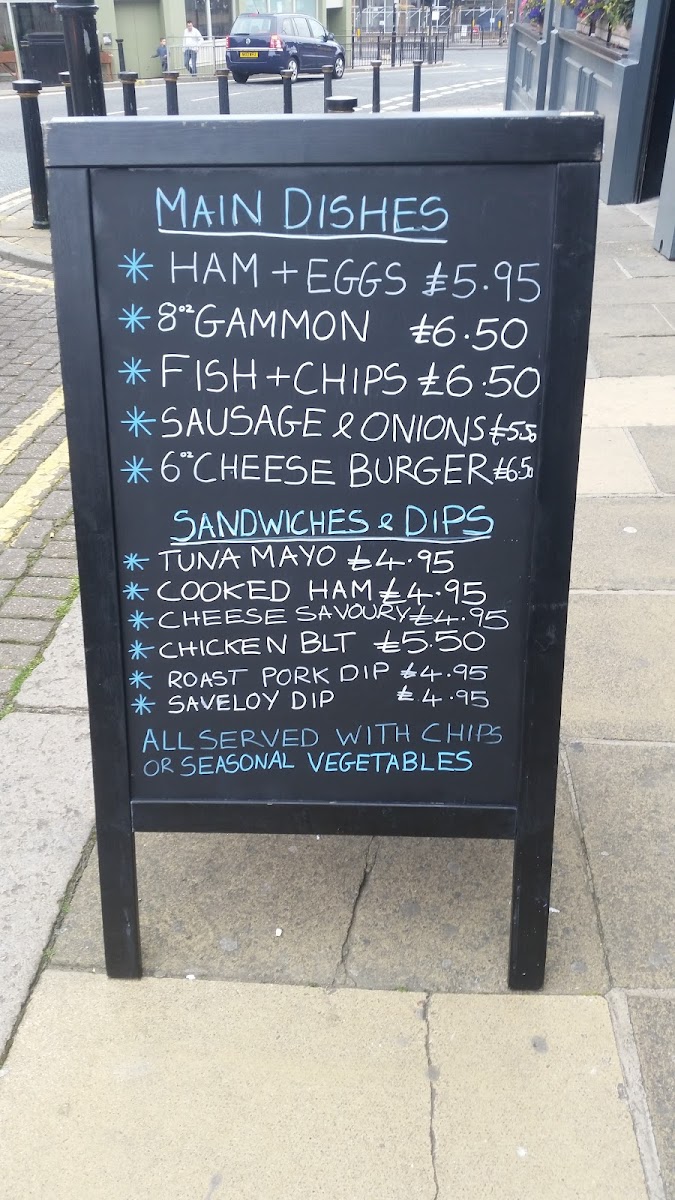 MAIN DISHES
* HAM + EGGS £5.95
* 8oz GAMMON £6.50
* FISH + CHIPS £6.50
* SAUSAGE & ONIONS £5.50
* 6oz CHEESE BURGER £6.50
SANDWICHES & DIPS
* TUNA MAYO £4.95
* COOKED HAM £4.95
* CHEESE SAVOURY £4.95
* CHICKEN BLT £5.50
* ROAST PORK DIP £4.95
* SAVELOY DIP £4.95
ALL SERVED WITH CHIPS
OR SEASONAL VEGETABLES